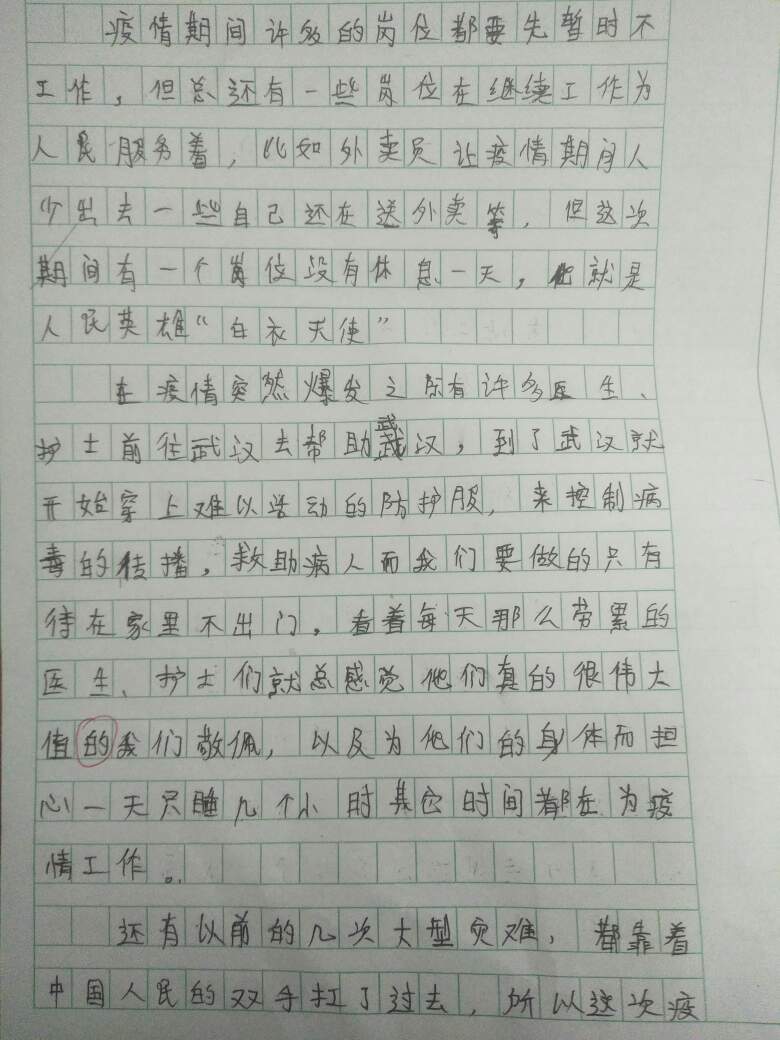 疫情期间许多的岗位都要先暂时不
工作，但总还有一些岗位在继续工作为
人民服务着，比如外卖员让疫情期间人
少出去一些自己还在送外卖等，但这次
期间有一个岗位没有休息一天，他就是
人民英雄“白衣天使”
在疫情突然爆发之际有许多医生、
护士前往武汉去帮助武汉，到了武汉就
开始穿上难以活动的防护服，来控制病
毒的传播，救助病人而我们要做的只有
待在家里不出门。看着每天那么劳累的
医生、护士们就总感觉他们真的很伟大
值的我们敬佩，以及为他们的身体而担
心一天只睡几个小时其它时间都在为疫
情工作。
还有以前的几次大型灾难，都靠着
中国人民的双手扛了过去，所以这次疫